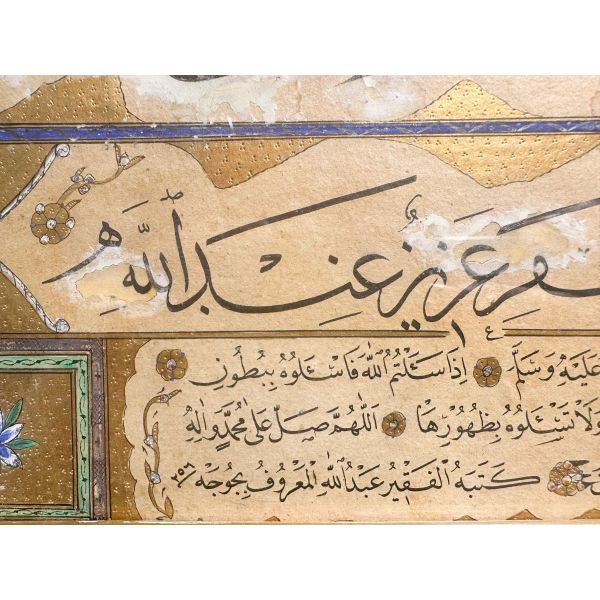 فر عزيز عند الله
عليه وسلم إذا سئلتم الله فاسئلوه ببطون
ولا تسئلوه بظهورها اللهم صل على محمد واله
كتبه الفقير عبد الله المعروف بجوجه